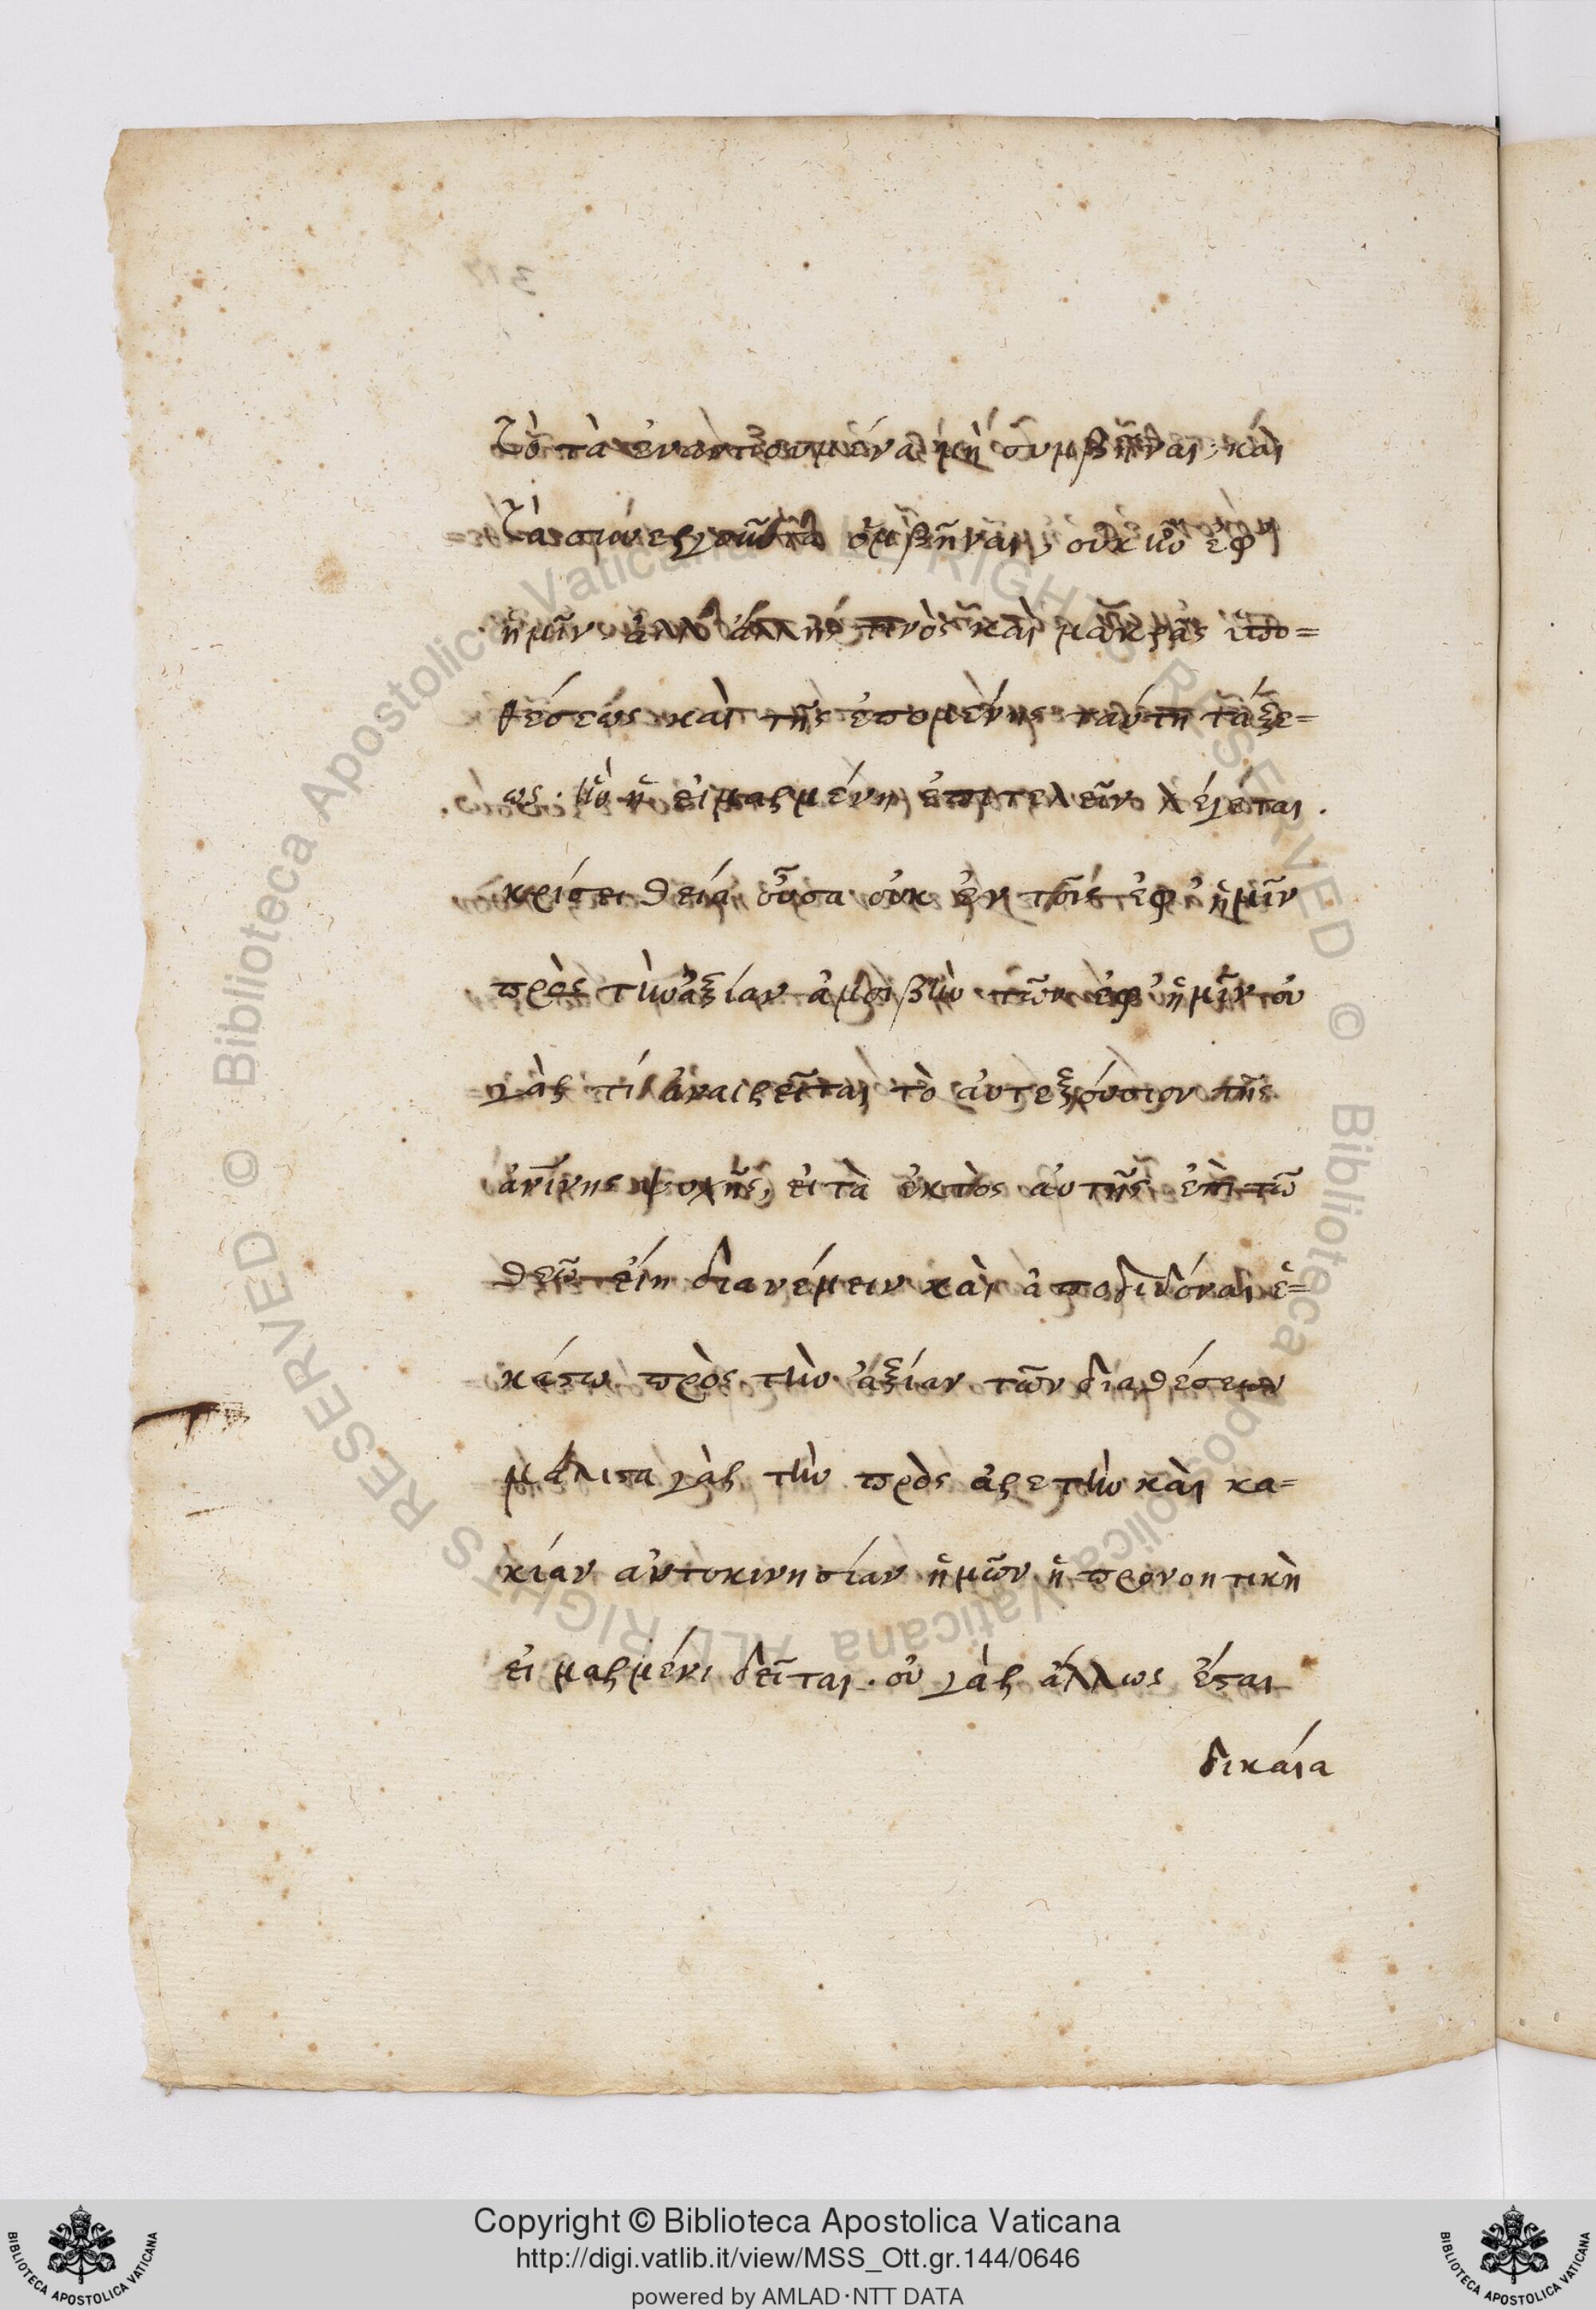 τὸ τὰ ἐναντιούμενα μὴ συμβῆναι, καὶ
τὰ συνεργοῦντα συμβῆναι, οὐκ ἦν ἐφ'
ἡμῖν. ἀλλ' ἄλλης τινὸς καὶ μακρᾶς ὑπο=
θέσεως καὶ τῆς ἑπομένης ταύτη τάξε=
ως. ἣν ἡ εἱμαρμένη ἐπιτελεῖν λέγεται.
κρίσει θεία οὖσα οὐκ ἐν τοῖς ἐφ' ἡμῖν
πρὸς τὴν ἀξίαν ἀμοιβὴν τῶν ἐφ' ἡμῖν οὐ
γάρ τι ἀναιρεῖται τὸ αὐτεξούσιον τῆς
ἀνίνης ψυχῆς, εἰ τὰ ἐκτὸς αὐτῆς ἐπὶ τῶ
θεῶ εἴη διανέμειν καὶ ἀποδιδόναι ἑ=
κάστω πρὸς τὴν ἀξίαν τῶν διαθέσεων
μάλιστα γὰρ τὴν πρὸς ἀρετὴν καὶ κα=
κίαν αὐτοκινησίαν ἡμῶν ἡ προνοητικὴ
εἱμαρμένι δεῖται. οὐ γὰρ ἄλλως ἔσται
δικαία
Copyright © Biblioteca Apostolica Vaticana
http://digi.vatlib.it/view/MSS_Ott.gr.144/0646
powered by AMLAD·NTT DATA
BIBLIOTECA APOSTOLICA VATICANA
BIBLIOTECA APOSTOLICA VATICANA
© Biblioteca Apostolica Vaticana ALL RIGHTS RESERVED © Biblioteca Apostolica Vaticana ALL RIGHTS RESERVED